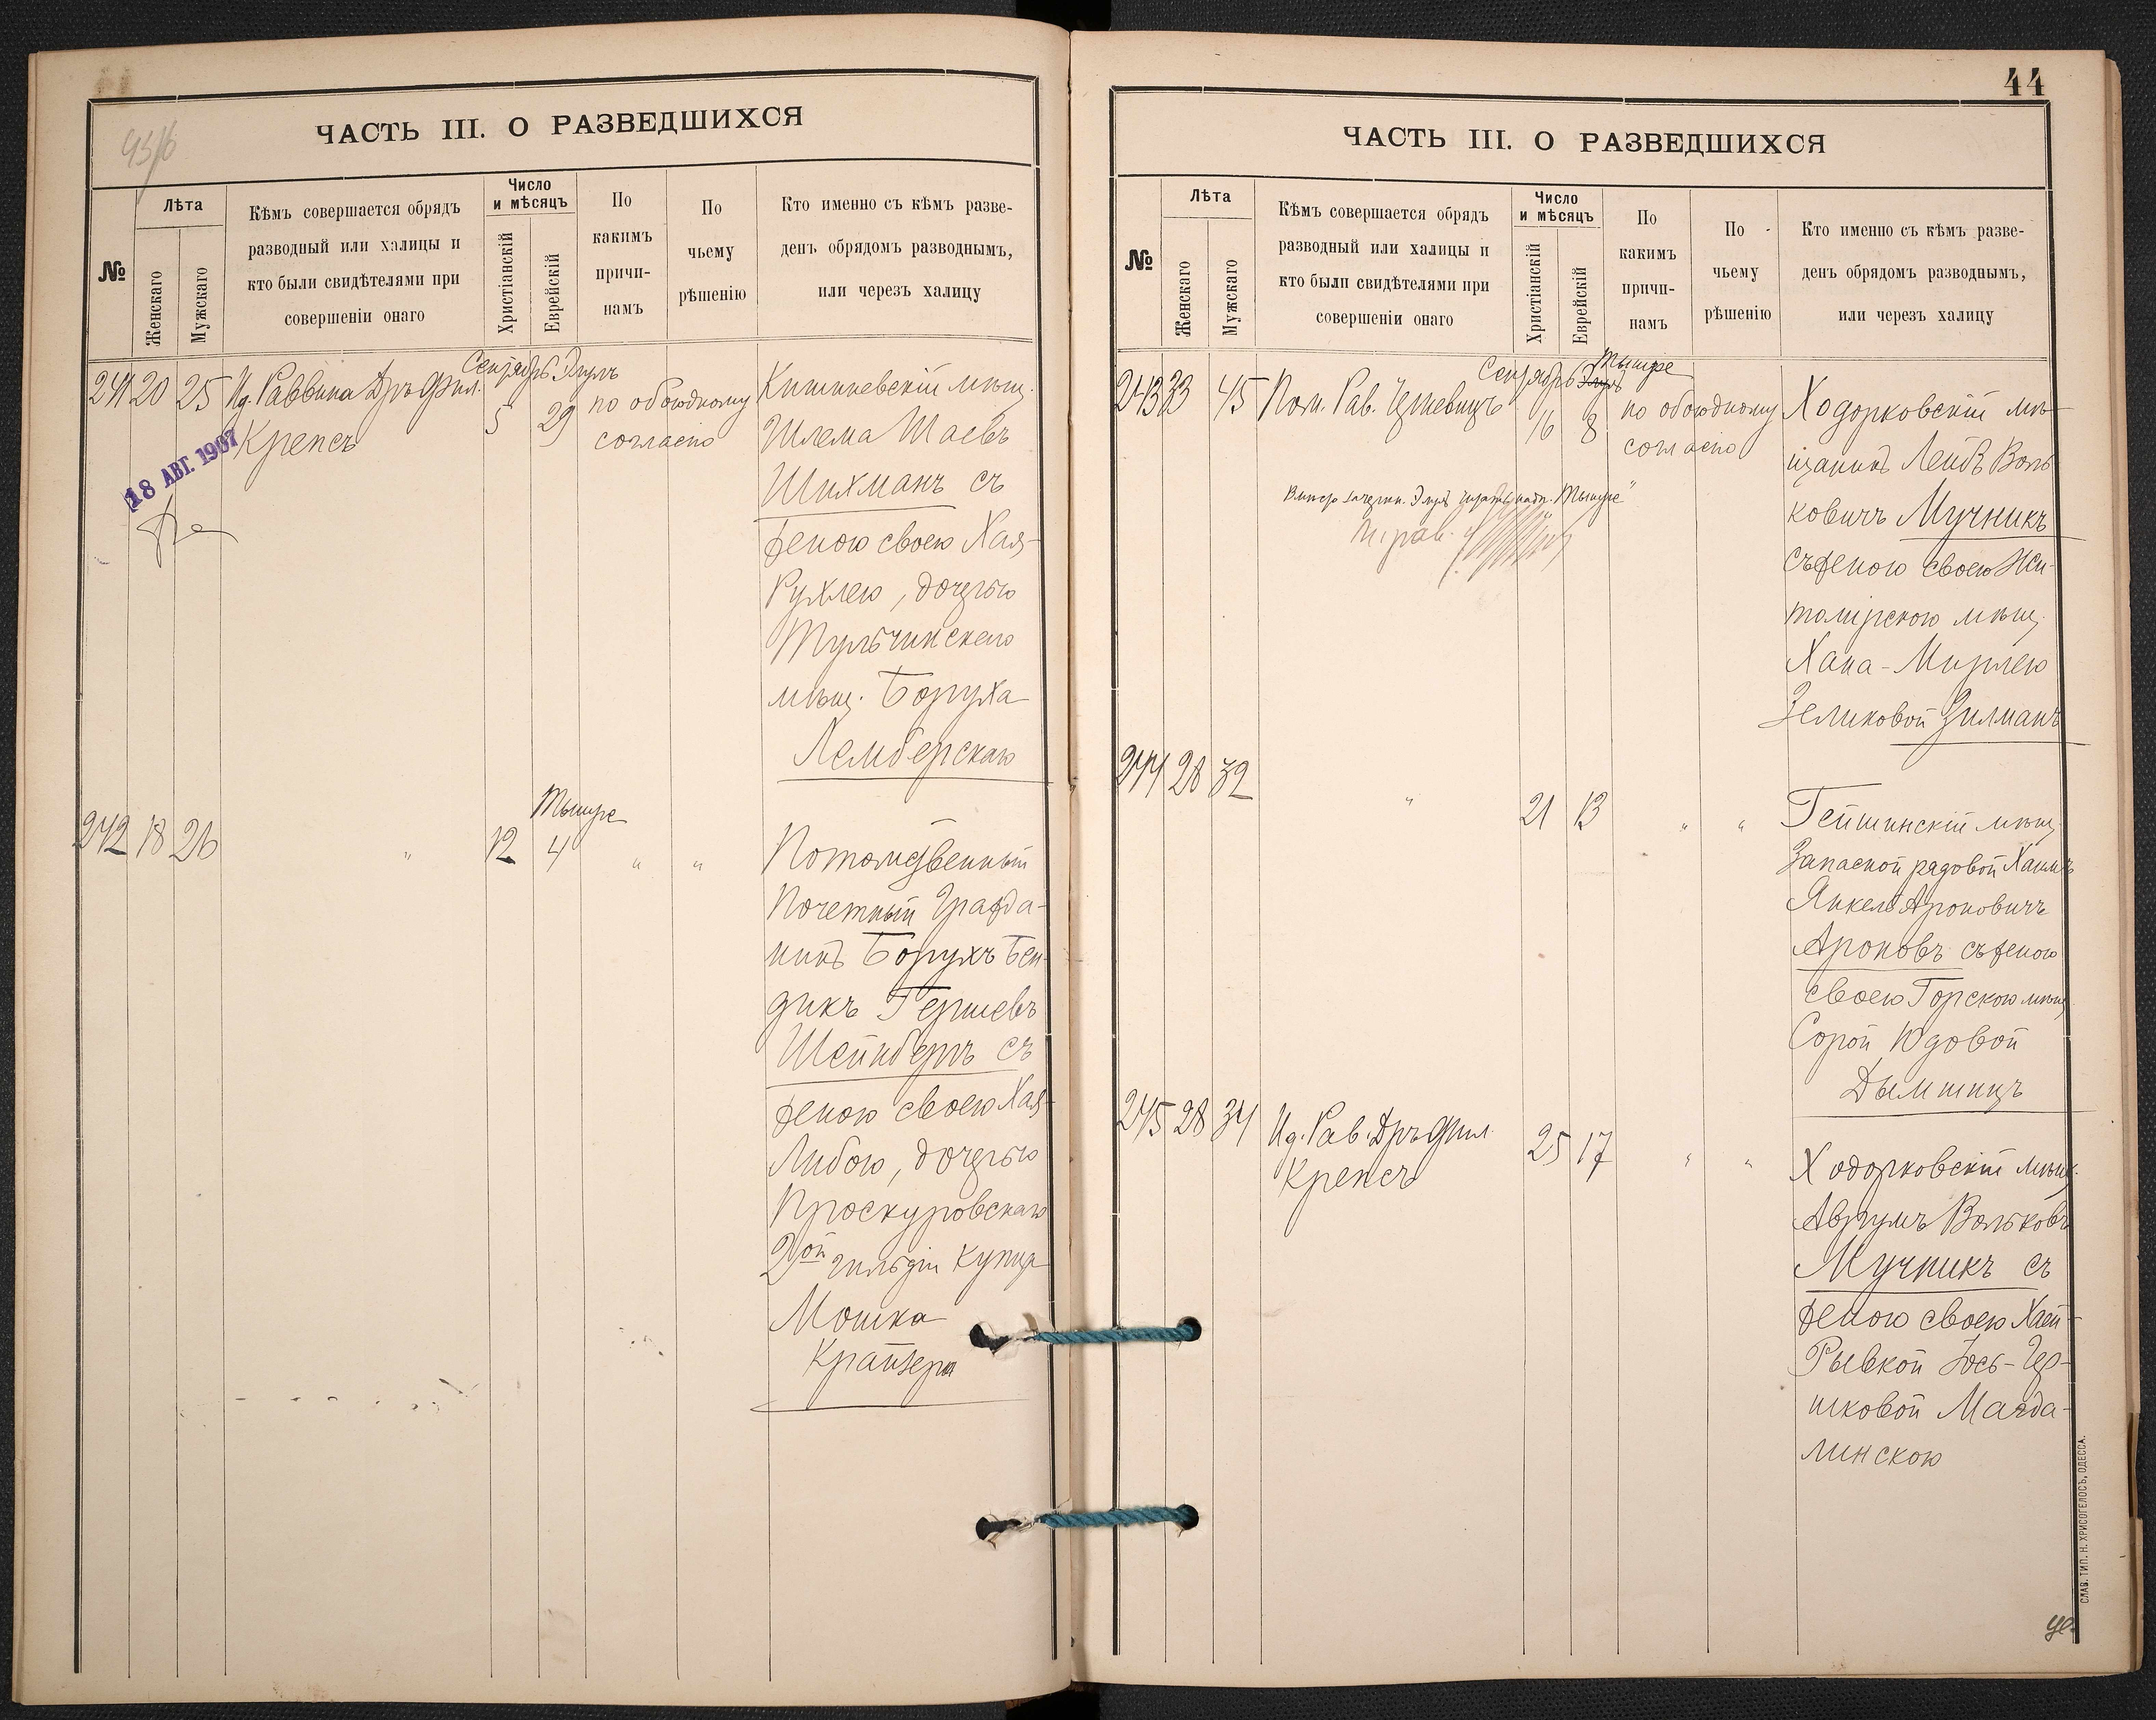 45/6
ЧАСТЬ III. О РАЗВЕДШИХСЯ
№
Лѣта
Женскаго
Мужскаго
Кѣмъ совершается обрядъ
разводный или халицы и
кто были свидѣтелями при
совершеніи онаго
Число
и мѣсяцъ
Христіанскій
Еврейскій
По
какимъ
причи-
намъ
По
чьему
рѣшенію
Кто именно съ кѣмъ разве-
денъ обрядомъ разводнымъ,
или черезъ халицу
241 20 25 Ид. Раввина Дръ Фил.
Крепсъ
Сентябрь Элулъ
5 29
по обоюдному
согласію
Кишиневскій мѣщ.
Шлема Шаевъ
Шихманъ съ
женою своею Хая-
Рухлею, дочерью
Тульчинскаго
мѣщ. Боруха
Лембергскаго
18 АВГ. 1907
242 18 26 " 12
Тишре
4 " "
Потомственный
Почетный Гражда-
нинъ Борухъ Бен-
дикъ Гершевъ
Шейнбергъ съ
женою своею Хая-
Либою, дочерью
Проскуровскаго
2ой гильдіи купца
Мошка
Крайзера
44
ЧАСТЬ III. О РАЗВЕДШИХСЯ
№
Лѣта
Женскаго
Мужскаго
Кѣмъ совершается обрядъ
разводный или халицы и
кто были свидѣтелями при
совершеніи онаго
Число
и мѣсяцъ
Христіанскій
Еврейскій
По
какимъ
причи-
намъ
По
чьему
рѣшенію
Кто именно съ кѣмъ разве-
денъ обрядомъ разводнымъ,
или черезъ халицу
243 33 45 Пом. Рав.
Сентябрь Элулъ Тишре
16 8
по обоюдному
согласію
Ходорковскій мѣ-
щанинъ Лейбъ Воль-
ковичъ Мучникъ
съ женою своею Жи-
томірскою мѣщ.
Хана-Мирлею
Зеликовой Зилманъ
244 28 32 " 21 13 " "
Гейшинскій мѣщ.
Запасной рядовой Хаимъ
Янкель Ароновичъ
Ароновъ съ женою
своею Горскою мѣщ.
Сорой Юдовой
Дымшицъ
245 28 34 Ид. Рав. Дръ Фил.
Крепсъ
25 17 " "
Ходорковскій мѣщ.
Аврумъ Вольковъ
Мучникъ съ
женою своею Хаей-
Рывкой Іось-Гер-
шковой Магда-
линскою
СЛАВ. ТИП. Н. ХРИСОГЕЛОСЪ, ОДЕССА.